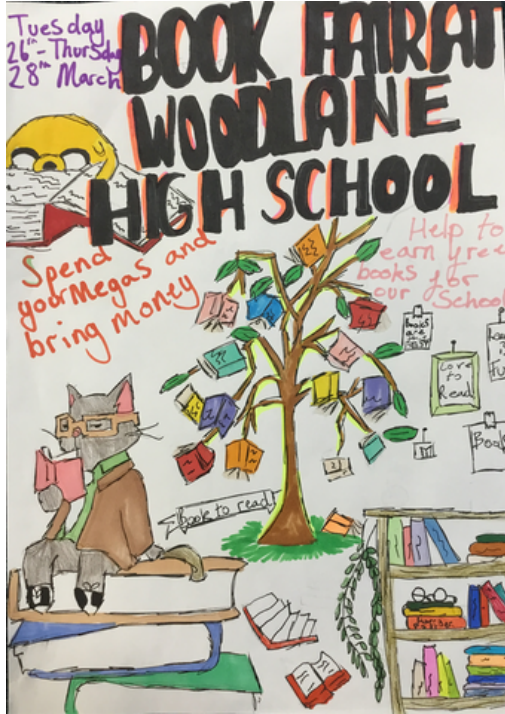 Tuesday
26th - Thursday
28th March
BOOK FAIR AT
WOODLANE
HIGH SCHOOL
Spend
your Megas and
bring money
Help to
earn free
books for
our School
Books
are
Love
to
Read
Book to read!